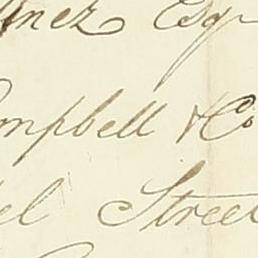 inez Esq
ampbell & Co
el Street